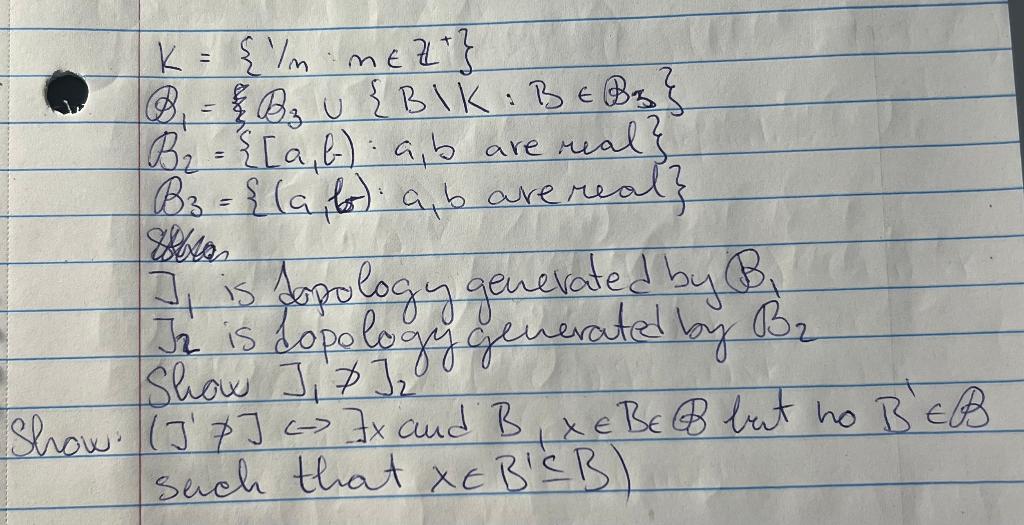 K = { 1/n : n ∈ Z⁺}
B₁ = B₃ ∪ { B \ K : B ∈ B₃ }
B₂ = {[a,b) : a,b are real}
B₃ = {(a,b) : a,b are real}
J₁ is topology generated by B₁
J₂ is topology generated by B₂
Show J₁ ⊅ J₂
Show: (J' ⊅ J ↔ ∃x and B, x ∈ B ∈ B but no B' ∈ B
such that x ∈ B' ⊆ B)